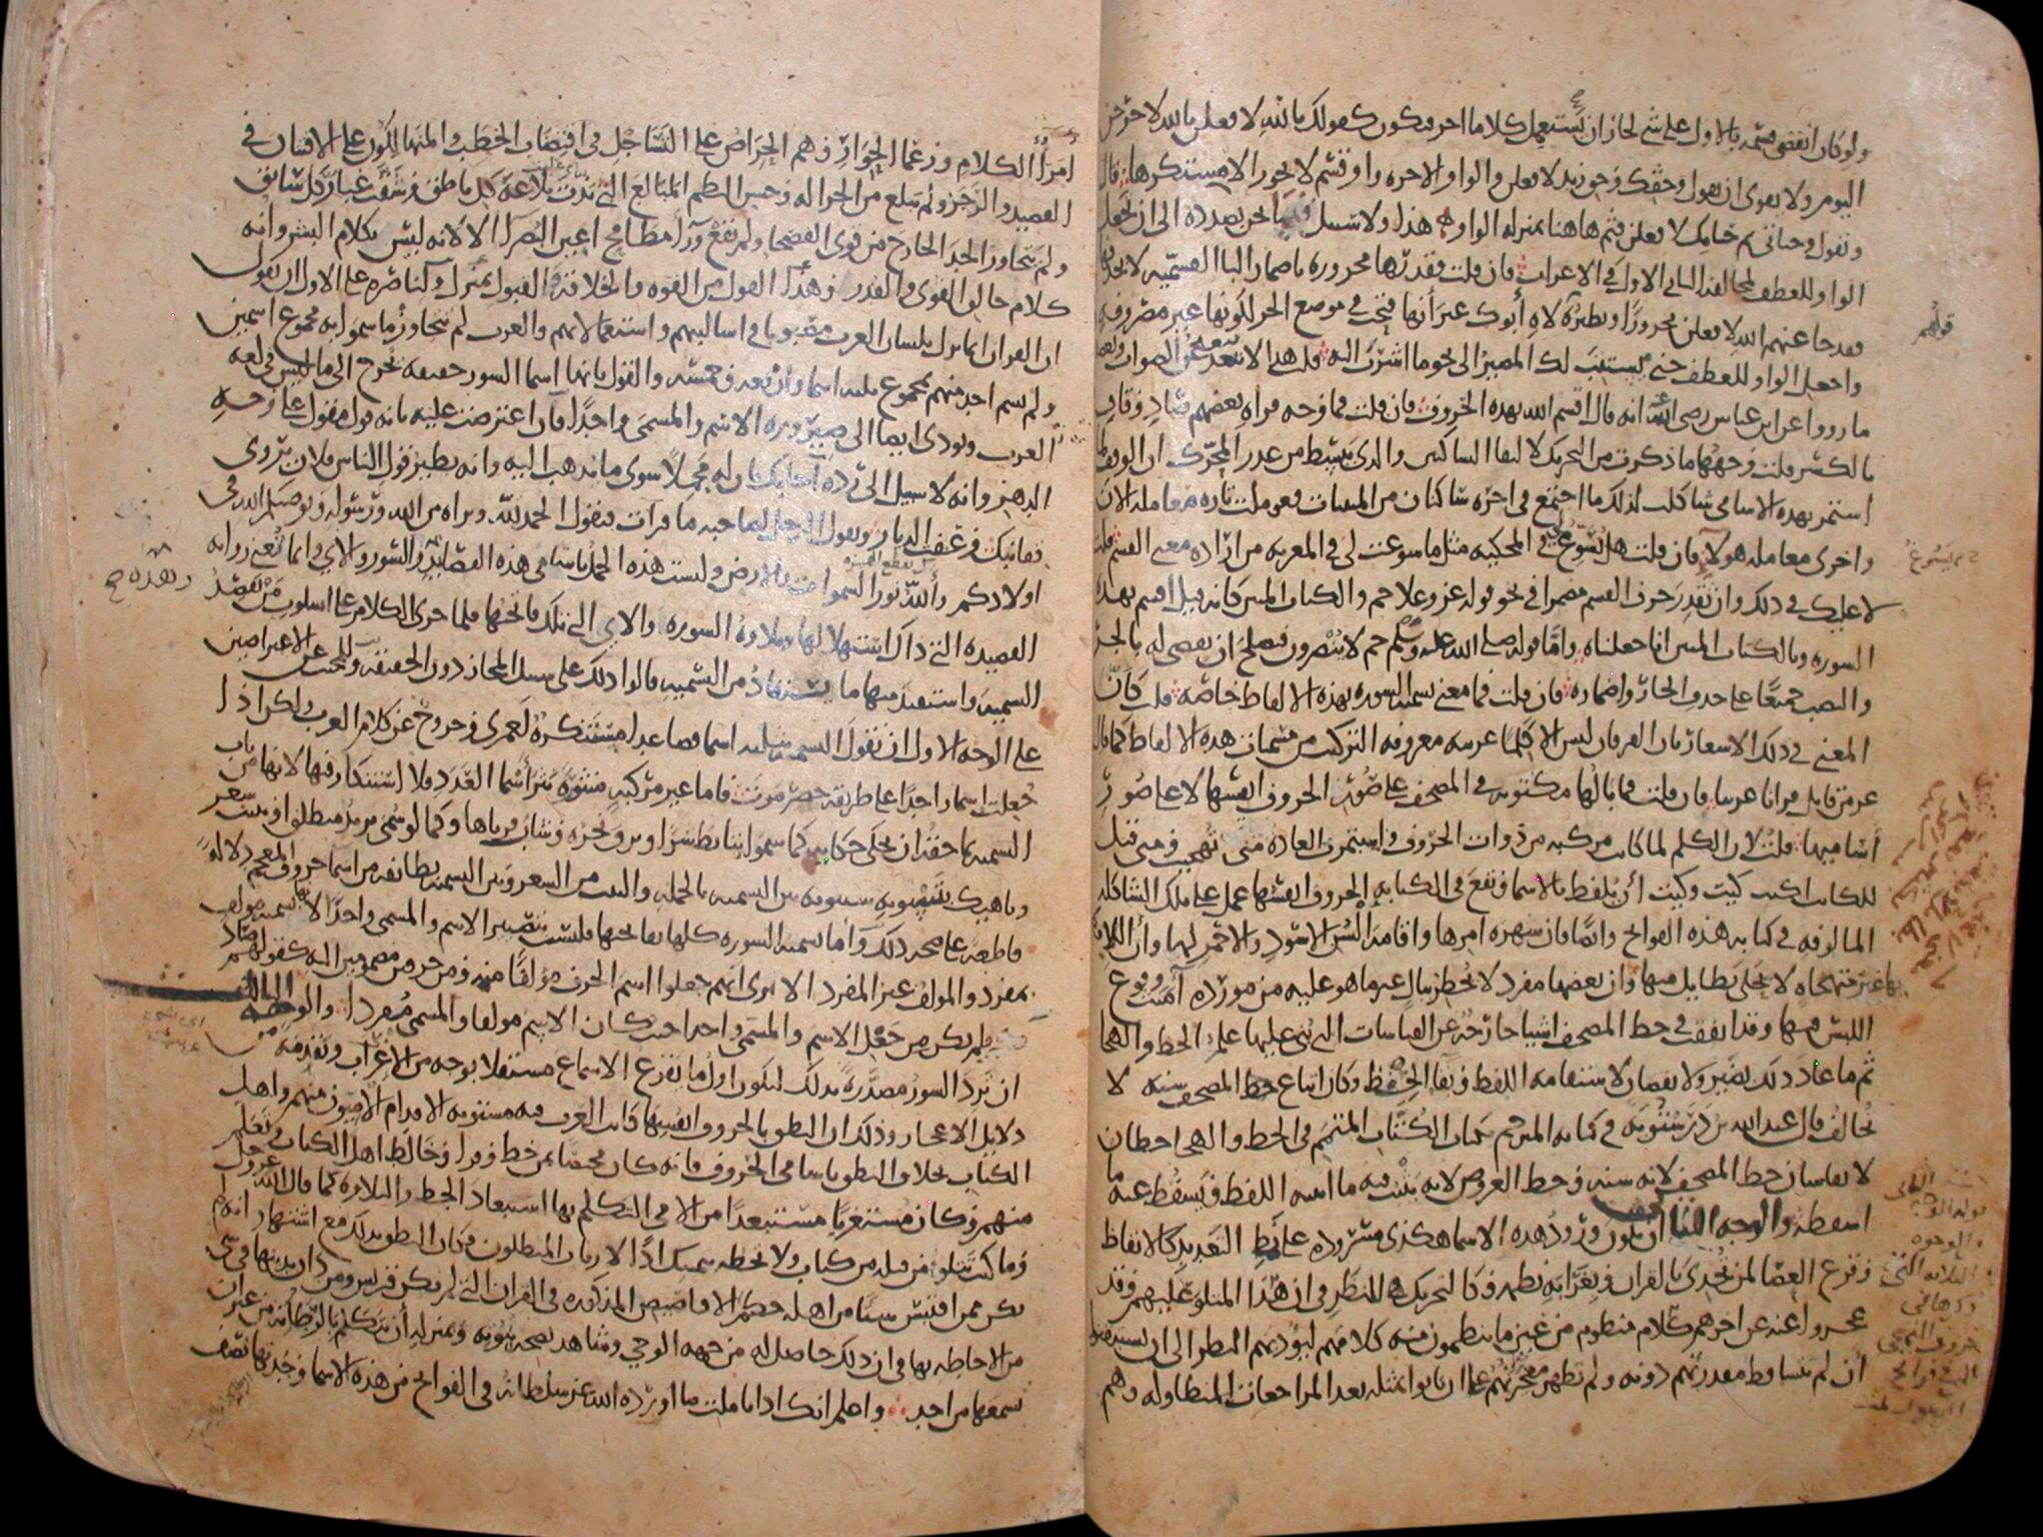 ولو كان انقضى قسمه بالاول على شي لجاز ان يستعمل كلاما اخر فيكون كقولك بالله لافعلن بالله لاخرجن
اليوم ولا يقوى ان تقول وحقك وحق زيد لافعلن والواو الاخره واو قسم لا يجوز الا مستكرها قال
وتقول وحياتي ثم حياتك لافعلن فثم هاهنا بمنزله الواو هذا ولا سبيل فيما نحن بصدده الى ان تجعل
الواو للعطف لمخالفه الثاني الاول في الاعراب فان قلت فقدرها مجروره باضمار البا القسميه لا بحذفها
فقد جا عنهم الله لافعلن مجرورا ونظيره لاه ابوك غير انها فتحت في موضع الجر لكونها غير مصروفه
واجعل الواو للعطف حتى يستتب لك المصير الى نحو ما اشرت اليه قلت هذا لا يبعد عن الصواب ويعضده
ما رووا عن ابن عباس رضى الله عنه انه قال اقسم الله بهذه الحروف فان قلت فما وجه قراه بعضهم صاد وقاف
بالكسر قلت وجهها ما ذكرت من التحريك لالتقا الساكنين والذى يبسط من عذر المحرك ان الوقف لما
استمر بهذه الاسامى شاكلت لذلك ما اجتمع في اخره ساكنان من المبنيات فعوملت تاره معامله الان
واخرى معامله هولا فان قلت هل تسوغ لي في المحكيه مثل ما سوغت لى في المعربه من اراده معنى القسم قلت
لا عليك في ذلك وان تقدر حرف القسم مضمرا في نحو قوله عز وعلا حم والكتاب المبين كانه قيل اقسم بهذه
السوره وبالكتاب المبين انا جعلناه واما قوله صلى الله عليه وسلم حم لا ينصرون فيصلح ان يقضى له بالجر
والنصب جميعا على حذف الجار واضماره فان قلت فما معنى تسميه السور بهذه الالفاظ خاصه قلت كان
المعنى في ذلك الاشعار بان الفرقان ليس الا كلما عربيه معروفه التركيب من مسميات هذه الالفاظ كما قال
عز من قايل قرانا عربيا فان قلت فما بالها مكتوبه في المصحف على صور الحروف انفسها لا على صور
اساميها قلت لان الكلم لما كانت مركبه من ذوات الحروف واستمرت العاده متى تهجيت ومتى قيل
للكاتب اكتب كيت وكيت ان يلفظ بالاسما وتقع في الكتابه الحروف انفسها عمل على تلك الشاكله
المالوفه في كتابه هذه الفواتح وايضا فان شهره امرها واقامه السن الاسود والاحمر لها وان اللافظ
بها غير متهجاه لا يحلى بطايل منها وان بعضها مفرد لا يخطر ببال غير ما هو عليه من مورده امنت وقوع
اللبس فيها وقد اتفقت في خط المصحف اشيا خارجه عن القياسات التى بنى عليها علم الخط والهجا
ثم ما عاد ذلك بضير ولا نقصان لاستقامه اللفظ وبقا الحفظ وكان اتباع خط المصحف سنه لا
تخالف قال عبد الله بن درستويه في كتابه المترجم بكتاب الكتاب المتمم في الخط والهجا خطان
لا يقاسان خط المصحف لانه سنه وخط العروض لانه يثبت فيه ما اثبته اللفظ ويسقط عنه ما
اسقطه والوجه الثاني ان يكون ورود هذه الاسما هكذى مسروده على نمط التعديد كالايقاظ
وقرع العصا لمن تحدى بالقران وبغرابه نظمه وكالتحريك للنظر في ان هذا المتلو عليهم وقد
عجزوا عنه عن اخرهم كلام منظوم من عين ما ينظمون منه كلامهم ليوديهم النظر الى ان يستيقنوا
ان لم تتساقط مقدرتهم دونه ولم تظهر معجزتهم عن ان ياتوا بمثله بعد المراجعات المتطاوله وهم
قولهم
امرا الكلام وزعما الحوار وهم الحراص على التساجل في اقتضاب الخطب والمتهالكون على الافتنان في
القصيد والرجز ولم يبلغ من الجزاله وحسن النظم المبالغ التى بذت بلاغه كل ناطق وشقت غبار كل سابق
ولم يتجاوز الحد الخارج من قوى الفصحا ولم يقع ورا مطامح اعين البصرا الا لانه ليس بكلام البشر وانه
كلام خالق القوى والقدر وهذا القول من القوه والخلاقه بالقبول بمنزل ولناصره على الاول ان يقول
ان القران انما نزل بلسان العرب مصبوبا في اساليبهم واستعمالاتهم والعرب لم تتجاوز ما سموا به مجموع اسمين
ولم يسم احد منهم بمجموع ثلثه اسما واربعه وخمسه والقول بانها اسما السور حقيقه تخرج الى ما ليس في لغه
العرب ويودى ايضا الى صيروره الاسم والمسمى واحدا فان اعترضت عليه بانه قول مقول على وجه
الدهر وانه لا سبيل الى رده اجابك بان له محملا سوى ما يذهب اليه وانه نظير قول الناس فلان يروى
قفا نبك وعفت الديار ويقول الرجل لصاحبه ما قرات فيقول الحمد لله وبراه من الله ورسوله ويوصيكم الله في
اولادكم والله نور السموات والارض وليست هذه الجمل باسامى هذه القصايد والسور والاى وانما تعنى روايه
القصيده التى ذاك استهلالها وتلاوه السوره والايه التى تلك فاتحتها فلما جرى الكلام على اسلوب من يقصد
التسميه واستفيد منها ما يستفاد من التسميه قالوا ذلك على سبيل المجاز دون الحقيقه وللمجيب عن الاعتراضين
على الوجه الاول ان يقول التسميه بثلثه اسما فصاعدا مستنكره لعمرى وخروج عن كلام العرب ولكن اذا
جعلت اسما واحدا على طريقه حضرموت فاما غير مركبه منثوره نثر اسما العدد فلا استنكار فيها لانها من باب
التسميه بما حقه ان يحكى حكايه كما سموا بتابط شرا وبرق نحره وشاب قرناها وكما لو سمى بزيد منطلق او بيت شعر
وناهيك بتسويه سيبويه بين التسميه بالجمله والبيت من الشعر وبين التسميه بطايفه من اسما حروف المعجم دلاله
قاطعه على صحه ذلك واما تسميه السوره كلها بفاتحتها فليست تصير الاسم والمسمى واحدا لانها تسميه مولف
بمفرد والمولف غير المفرد الا ترى انهم جعلوا اسم الحرف مولفا منه ومن حرفين مضمومين اليه كقولهم صاد
فلم يكن من جعل الاسم والمسمى واحدا حيث كان الاسم مولفا والمسمى مفردا والوجه الثالث
ان ترد السور مصدره بذلك ليكون اول ما يقرع الاسماع مستقلا بوجه من الاغراب وتقدمه من
دلايل الاعجاز وذلك ان النطق بالحروف انفسها كانت العرب فيه مستويه الاقدام الاميون منهم واهل
الكتاب بخلاف النطق باسامى الحروف فانه كان مختصا بمن خط وقرا وخالط اهل الكتاب وتعلم
منهم وكان مستغربا مستبعدا من الامى التكلم بها استبعاد الخط والتلاوه كما قال الله عز وجل
وما كنت تتلو من قبله من كتاب ولا تخطه بيمينك اذا لارتاب المبطلون وكان النطق بذلك مع اشتهار انه لم
يكن ممن اقتبس شيئا من اهله حكم الاقاصيص المذكوره في القران التى لم يكن قريش ومن دان بدينها في شى
من الاحاطه بها في ان ذلك حاصل له من جهه الوحى وشاهد بصحه نبوته وبمنزله ان يتكلم بالرطانه من غير ان
سمعها من احد واعلم انك اذا تاملت ما اورده الله عز سلطانه في الفواتح من هذه الاسما وجدتها نصف